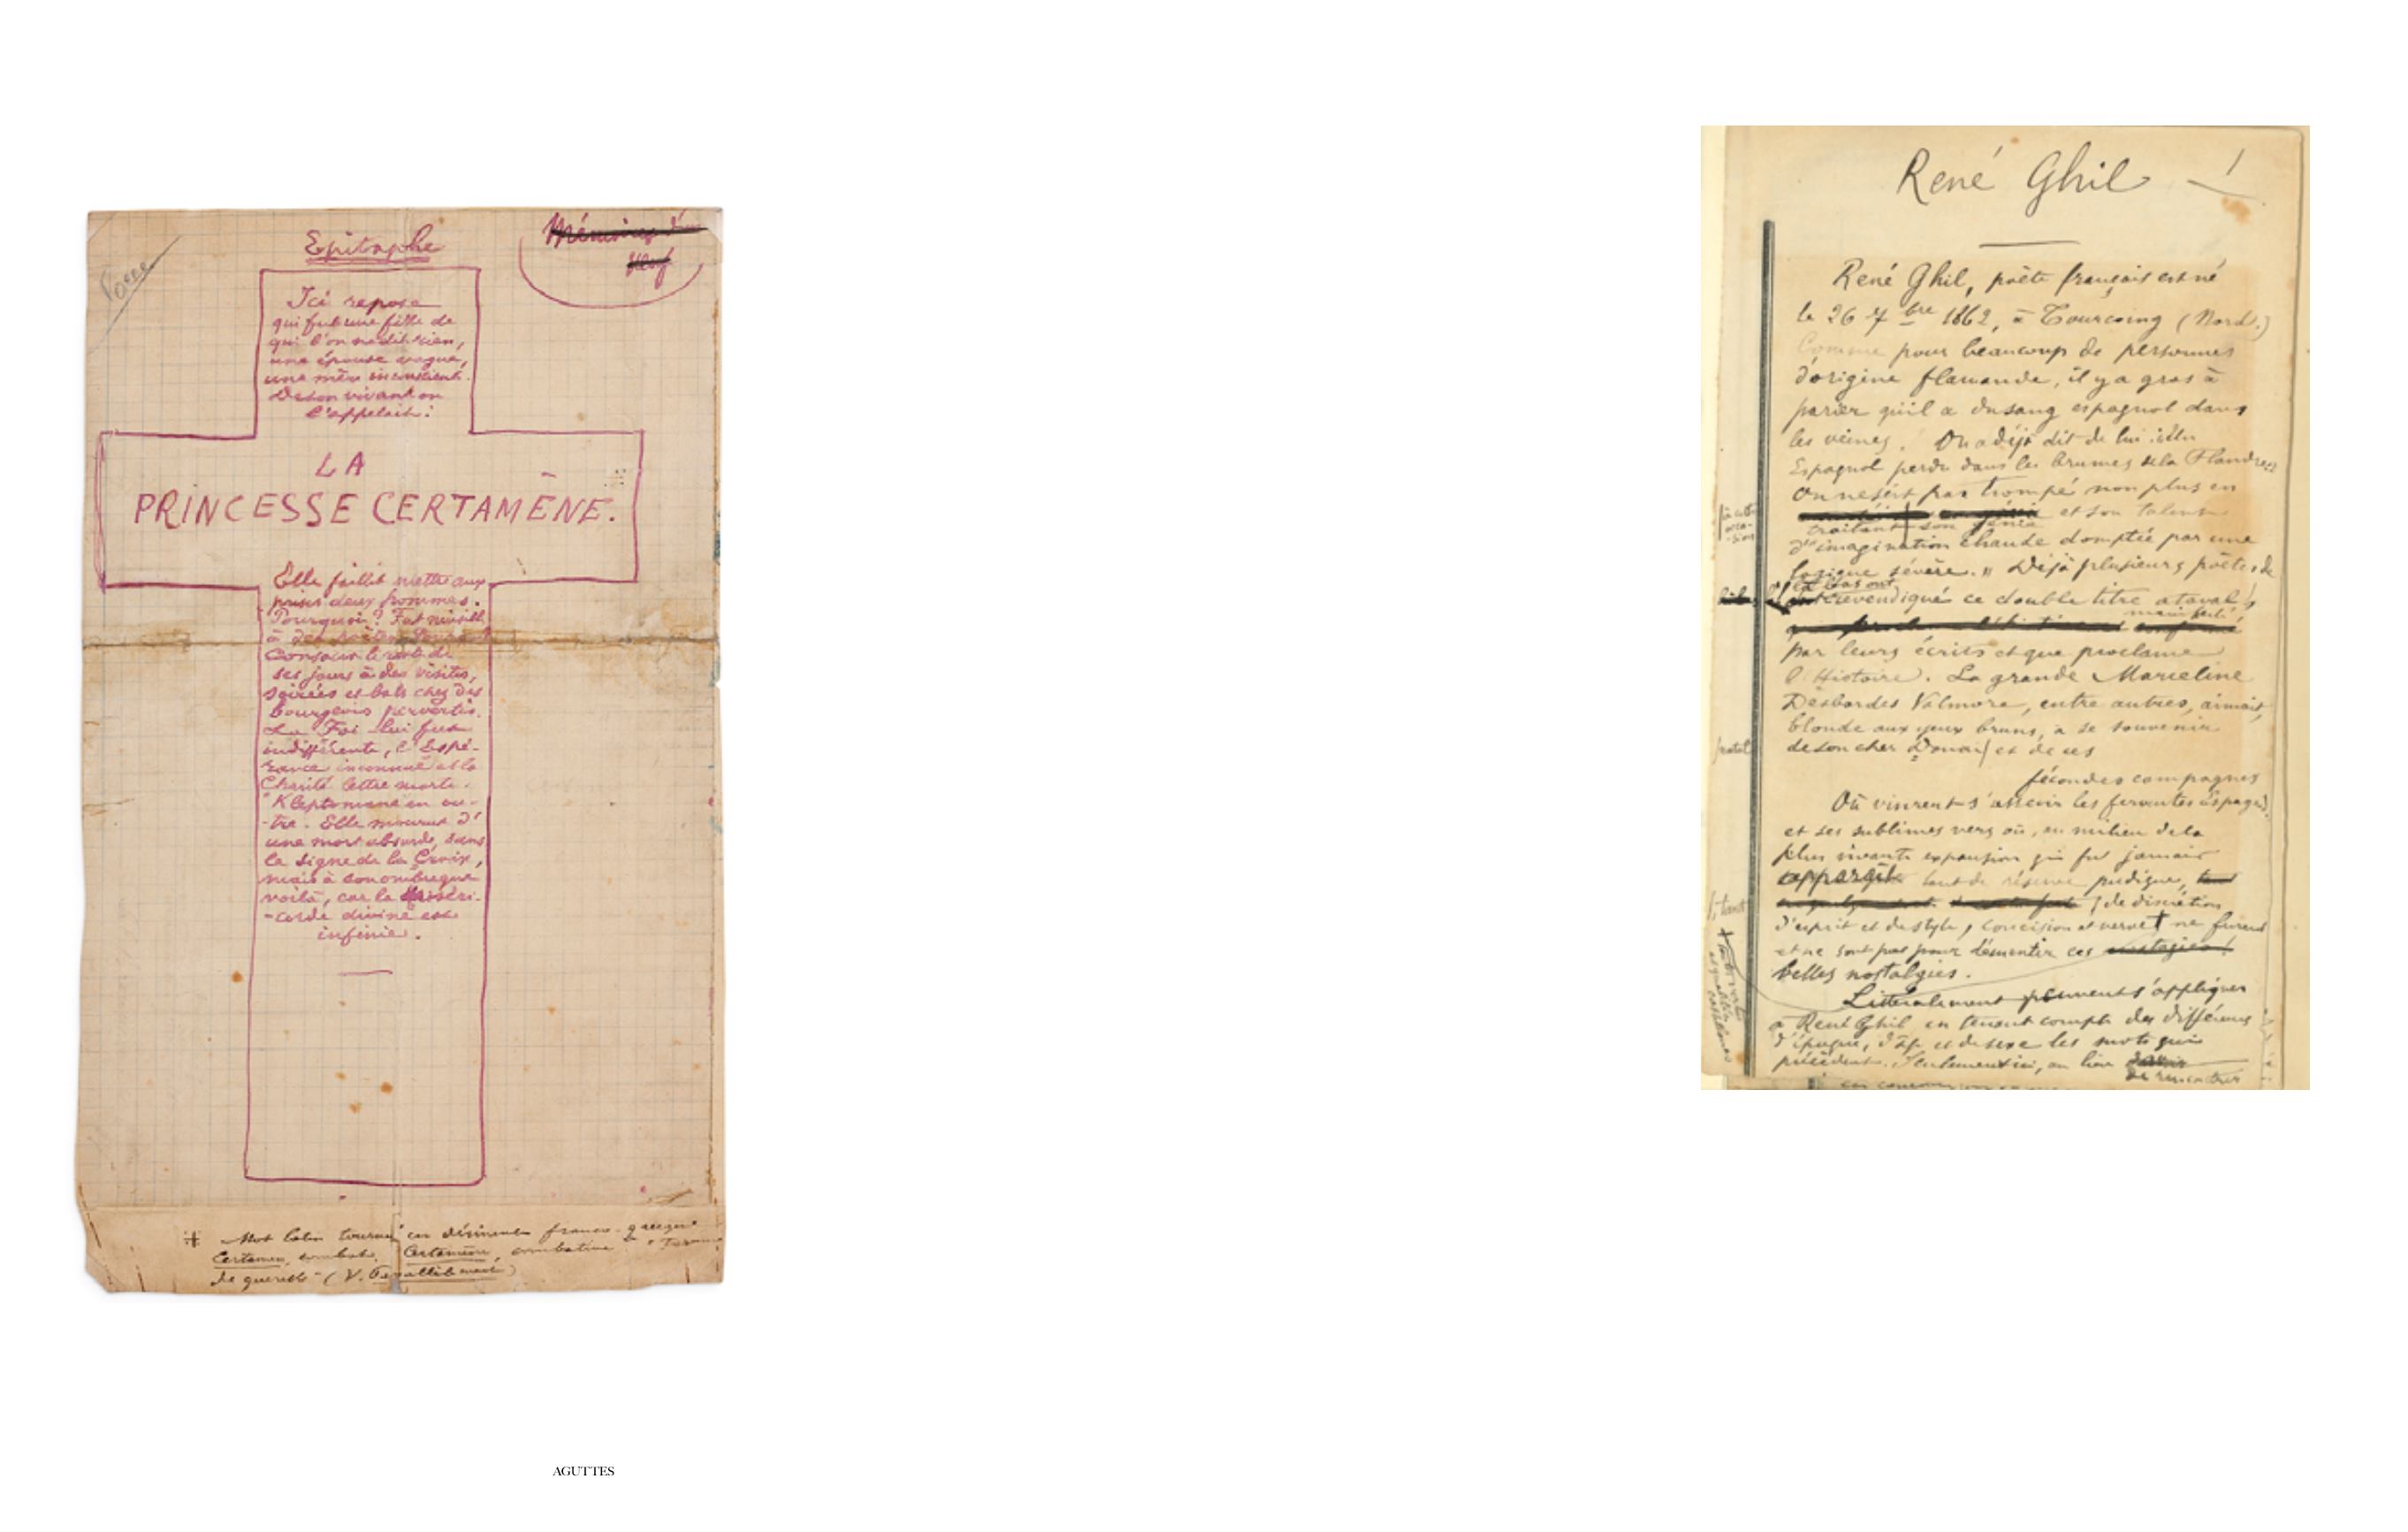 Epitaphe
Ici repose
qui fut une fille de
qui l'on ne dit rien,
une épouse vague,
une mère inconsciente.
De son vivant on
l'appelait :
LA
PRINCESSE CERTAMÈNE.
Elle faillit mettre aux
prises deux hommes.
Pourquoi ? Fut nuisible
à des poètes
Consacra le reste de
ses jours à des visites,
soirées et bals chez des
bourgeois pervertis.
La Foi lui fut
indifférente, l'Espé-
rance inconnue et la
Charité lettre morte.
Kleptomane en ou-
-tre. Elle mourut d'
une mort absurde, sans
le signe de la Croix,
mais à son ombre que
voilà, car la Miséri-
-corde divine est
infinie.
Mot latin tourné en désinence franco-grecque
Certamen, combat. Certamène, combative
de guerre
AGUTTES
René Ghil
René Ghil, poète français est né
le 26 7bre 1862, à Tourcoing (Nord.)
Comme pour beaucoup de personnes
d'origine flamande, il y a gros à
parier qu'il a du sang espagnol dans
les veines. On a déjà dit de lui : « Un
Espagnol perdu dans les brumes de la Flandre »
On ne s'est pas trompé non plus en
et son talent
traitant son génie
d'"imagination chaude domptée par une
logique sévère. » Déjà plusieurs poètes de
là-bas ont
revendiqué ce double titre
par leurs écrits et que proclame
l'Histoire. La grande Marceline
Desbordes Valmore, entre autres, aimait,
blonde aux yeux bruns, à se souvenir
de son cher Douai et de ces
fécondes campagnes
Où vinrent s'asseoir les ferventes Espagnes
et ses sublimes vers où, au milieu de la
plus vivante expansion qui fut jamais
tant de réserve pudique,
de discrétion
d'esprit et de style, concision et verve ne furent
et ne sont pas pour démentir ces
belles nostalgies.
Littéralement peuvent s'appliquer
à René Ghil en tenant compte des différences
d'époque, d'âge et de sexe les mots qui
précèdent. Seulement ici, au lieu
de rencontrer